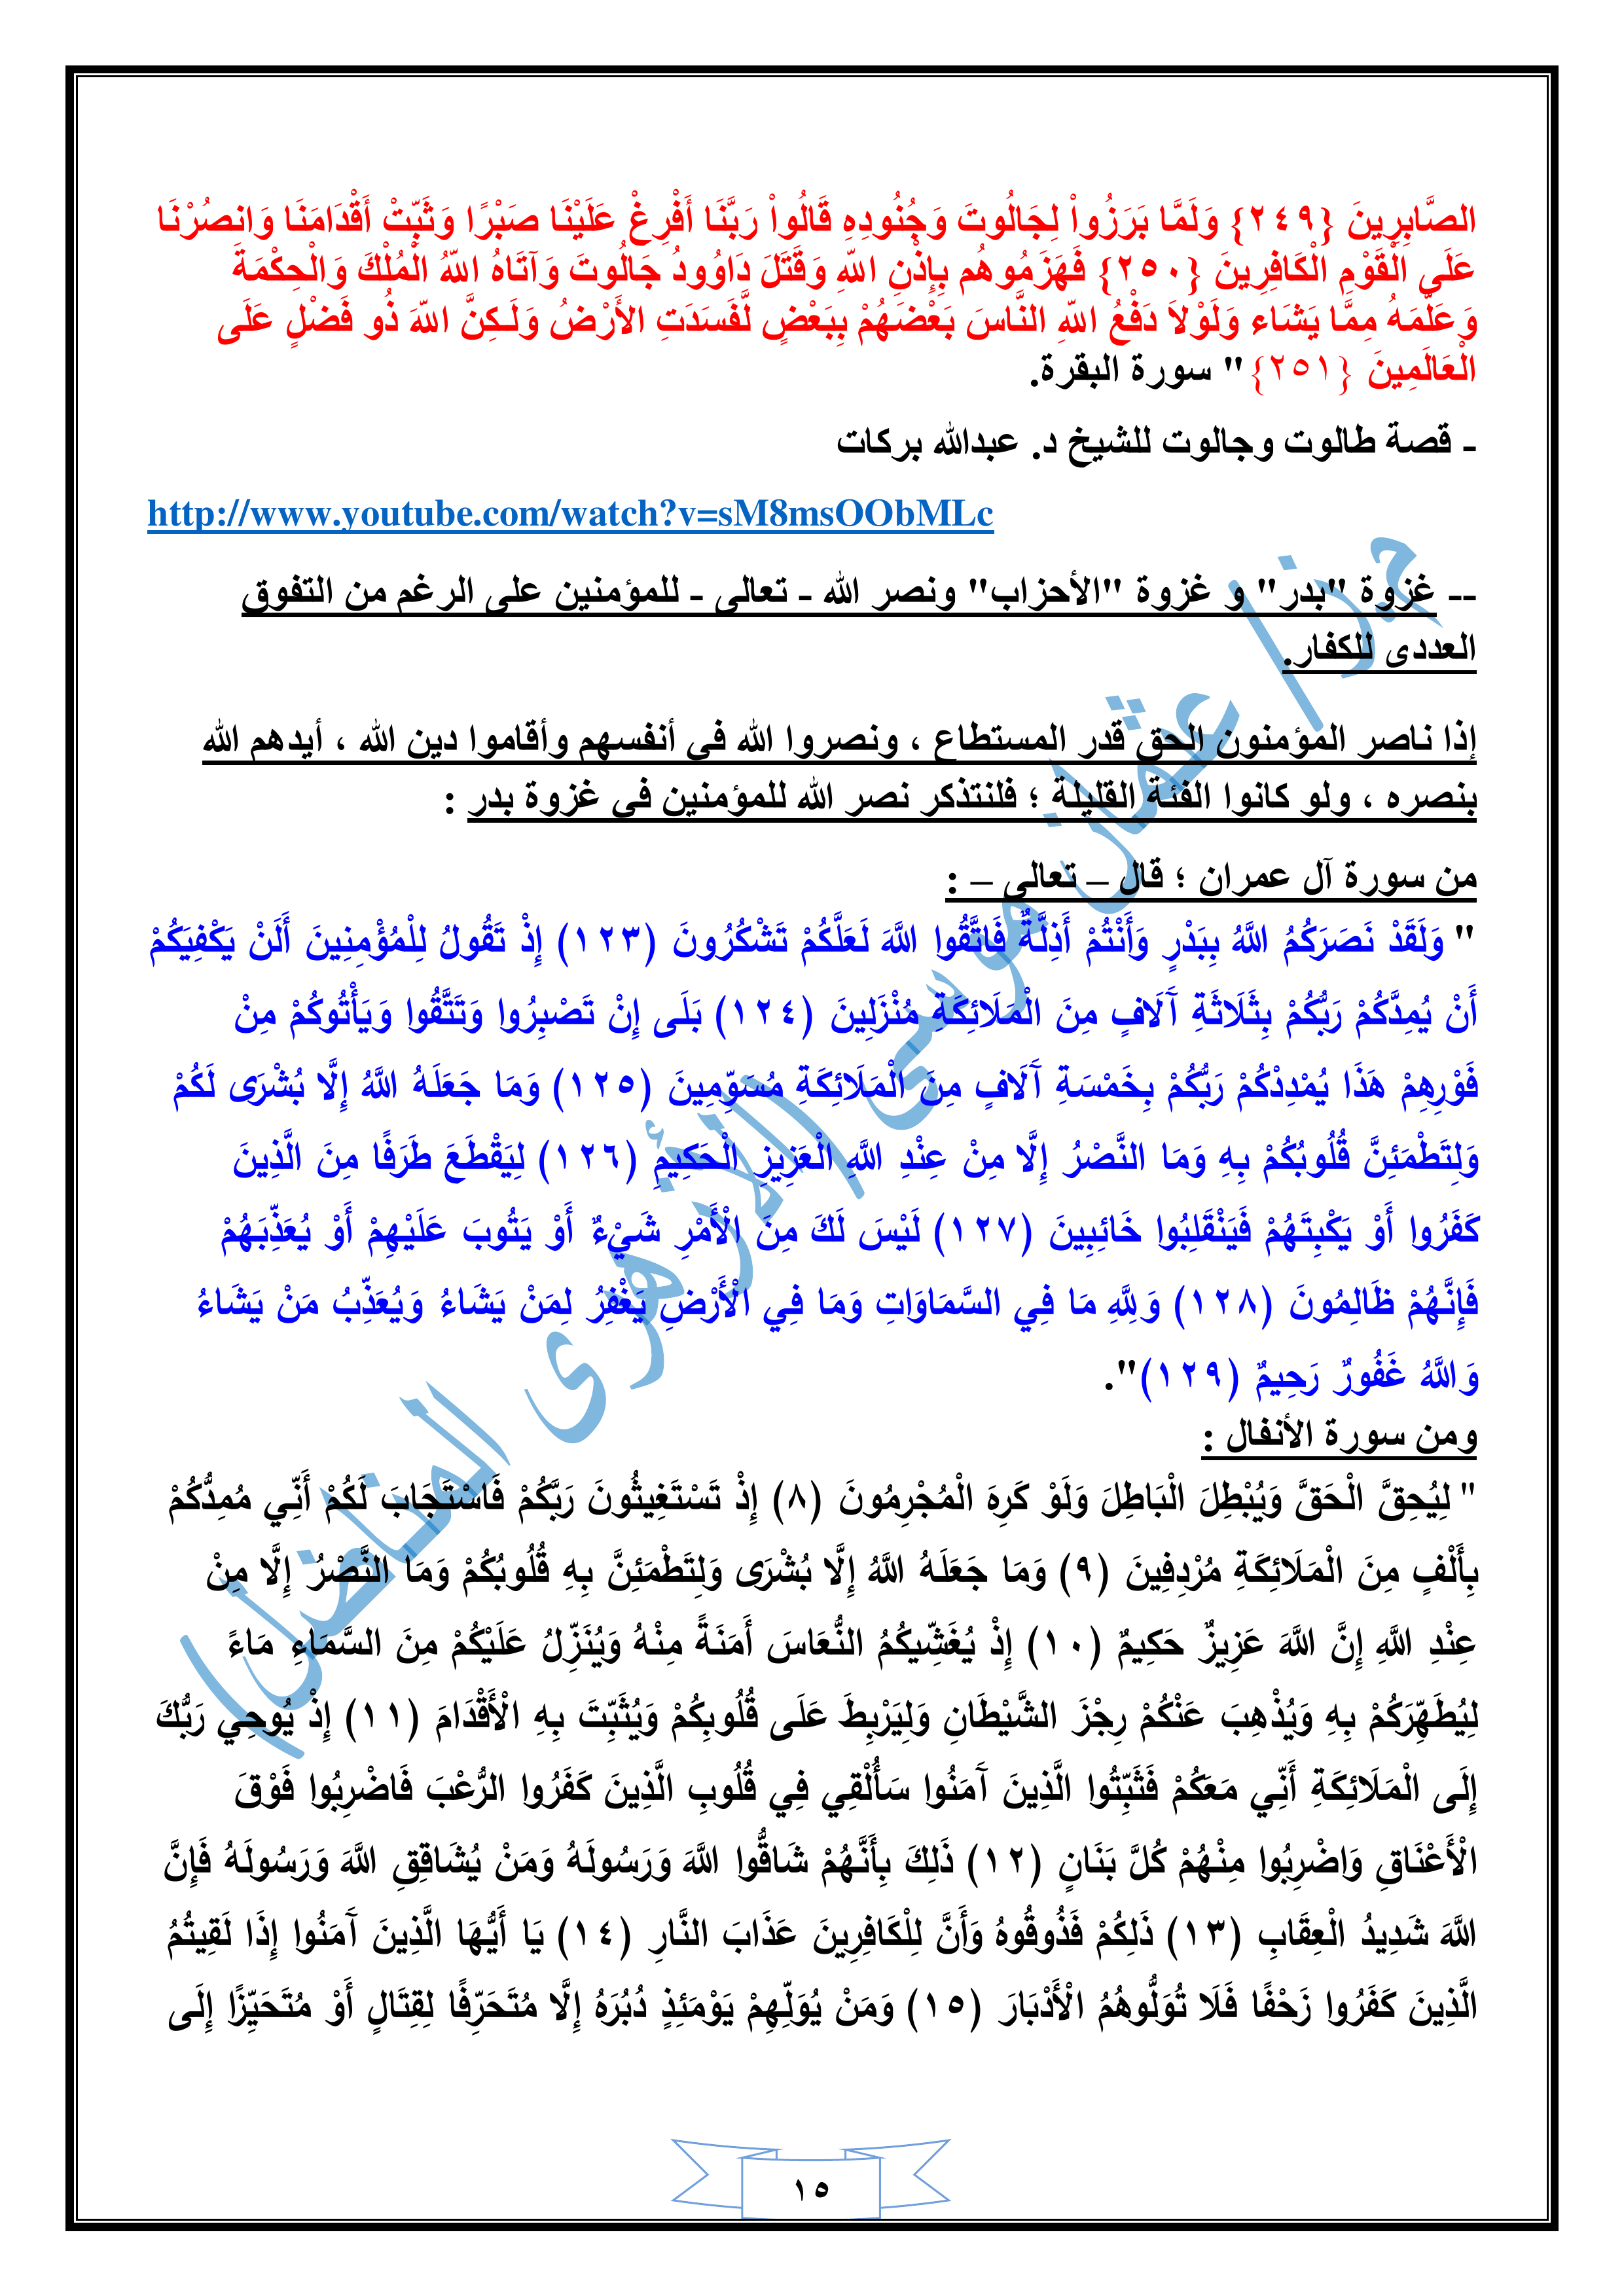 الصَّابِرِينَ {٢٤٩} وَلَمَّا بَرَزُواْ لِجَالُوتَ وَجُنُودِهِ قَالُواْ رَبَّنَا أَفْرِغْ عَلَيْنَا صَبْرًا وَثَبِّتْ أَقْدَامَنَا وَانصُرْنَا
عَلَى الْقَوْمِ الْكَافِرِينَ {٢٥٠} فَهَزَمُوهُم بِإِذْنِ اللّهِ وَقَتَلَ دَاوُودُ جَالُوتَ وَآتَاهُ اللّهُ الْمُلْكَ وَالْحِكْمَةَ
وَعَلَّمَهُ مِمَّا يَشَاء وَلَوْلاَ دَفْعُ اللّهِ النَّاسَ بَعْضَهُمْ بِبَعْضٍ لَّفَسَدَتِ الأَرْضُ وَلَـكِنَّ اللّهَ ذُو فَضْلٍ عَلَى
الْعَالَمِينَ {٢٥١}" سورة البقرة.
- قصة طالوت وجالوت للشيخ د. عبدالله بركات
http://www.youtube.com/watch?v=sM8msOObMLc
-- غزوة "بدر" و غزوة "الأحزاب" ونصر الله - تعالى - للمؤمنين على الرغم من التفوق
العددى للكفار.
إذا ناصر المؤمنون الحق قدر المستطاع ، ونصروا الله في أنفسهم وأقاموا دين الله ، أيدهم الله
بنصره ، ولو كانوا الفئة القليلة ؛ فلنتذكر نصر الله للمؤمنين في غزوة بدر :
من سورة آل عمران ؛ قال – تعالى – :
" وَلَقَدْ نَصَرَكُمُ اللَّهُ بِبَدْرٍ وَأَنْتُمْ أَذِلَّةٌ فَاتَّقُوا اللَّهَ لَعَلَّكُمْ تَشْكُرُونَ (١٢٣) إِذْ تَقُولُ لِلْمُؤْمِنِينَ أَلَنْ يَكْفِيَكُمْ
أَنْ يُمِدَّكُمْ رَبُّكُمْ بِثَلَاثَةِ آَلَافٍ مِنَ الْمَلَائِكَةِ مُنْزَلِينَ (١٢٤) بَلَى إِنْ تَصْبِرُوا وَتَتَّقُوا وَيَأْتُوكُمْ مِنْ
فَوْرِهِمْ هَذَا يُمْدِدْكُمْ رَبُّكُمْ بِخَمْسَةِ آَلَافٍ مِنَ الْمَلَائِكَةِ مُسَوِّمِينَ (١٢٥) وَمَا جَعَلَهُ اللَّهُ إِلَّا بُشْرَى لَكُمْ
وَلِتَطْمَئِنَّ قُلُوبُكُمْ بِهِ وَمَا النَّصْرُ إِلَّا مِنْ عِنْدِ اللَّهِ الْعَزِيزِ الْحَكِيمِ (١٢٦) لِيَقْطَعَ طَرَفًا مِنَ الَّذِينَ
كَفَرُوا أَوْ يَكْبِتَهُمْ فَيَنْقَلِبُوا خَائِبِينَ (١٢٧) لَيْسَ لَكَ مِنَ الْأَمْرِ شَيْءٌ أَوْ يَتُوبَ عَلَيْهِمْ أَوْ يُعَذِّبَهُمْ
فَإِنَّهُمْ ظَالِمُونَ (١٢٨) وَلِلَّهِ مَا فِي السَّمَاوَاتِ وَمَا فِي الْأَرْضِ يَغْفِرُ لِمَنْ يَشَاءُ وَيُعَذِّبُ مَنْ يَشَاءُ
وَاللَّهُ غَفُورٌ رَحِيمٌ (١٢٩)".
ومن سورة الأنفال :
" لِيُحِقَّ الْحَقَّ وَيُبْطِلَ الْبَاطِلَ وَلَوْ كَرِهَ الْمُجْرِمُونَ (٨) إِذْ تَسْتَغِيثُونَ رَبَّكُمْ فَاسْتَجَابَ لَكُمْ أَنِّي مُمِدُّكُمْ
بِأَلْفٍ مِنَ الْمَلَائِكَةِ مُرْدِفِينَ (٩) وَمَا جَعَلَهُ اللَّهُ إِلَّا بُشْرَى وَلِتَطْمَئِنَّ بِهِ قُلُوبُكُمْ وَمَا النَّصْرُ إِلَّا مِنْ
عِنْدِ اللَّهِ إِنَّ اللَّهَ عَزِيزٌ حَكِيمٌ (١٠) إِذْ يُغَشِّيكُمُ النُّعَاسَ أَمَنَةً مِنْهُ وَيُنَزِّلُ عَلَيْكُمْ مِنَ السَّمَاءِ مَاءً
لِيُطَهِّرَكُمْ بِهِ وَيُذْهِبَ عَنْكُمْ رِجْزَ الشَّيْطَانِ وَلِيَرْبِطَ عَلَى قُلُوبِكُمْ وَيُثَبِّتَ بِهِ الْأَقْدَامَ (١١) إِذْ يُوحِي رَبُّكَ
إِلَى الْمَلَائِكَةِ أَنِّي مَعَكُمْ فَثَبِّتُوا الَّذِينَ آَمَنُوا سَأُلْقِي فِي قُلُوبِ الَّذِينَ كَفَرُوا الرُّعْبَ فَاضْرِبُوا فَوْقَ
الْأَعْنَاقِ وَاضْرِبُوا مِنْهُمْ كُلَّ بَنَانٍ (١٢) ذَلِكَ بِأَنَّهُمْ شَاقُّوا اللَّهَ وَرَسُولَهُ وَمَنْ يُشَاقِقِ اللَّهَ وَرَسُولَهُ فَإِنَّ
اللَّهَ شَدِيدُ الْعِقَابِ (١٣) ذَلِكُمْ فَذُوقُوهُ وَأَنَّ لِلْكَافِرِينَ عَذَابَ النَّارِ (١٤) يَا أَيُّهَا الَّذِينَ آَمَنُوا إِذَا لَقِيتُمُ
الَّذِينَ كَفَرُوا زَحْفًا فَلَا تُوَلُّوهُمُ الْأَدْبَارَ (١٥) وَمَنْ يُوَلِّهِمْ يَوْمَئِذٍ دُبُرَهُ إِلَّا مُتَحَرِّفًا لِقِتَالٍ أَوْ مُتَحَيِّزًا إِلَى
م.ز/ عثمان موسى (الأزهرى المناضل)
١٥